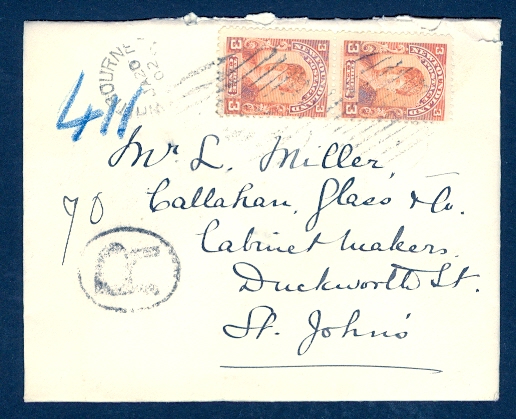 BOURNE
JA 20
02
NEWFOUNDLAND
3 3
NEWFOUNDLAND
3 3
411
Mr. L. Miller,
Callahan, Glass & Co.
Cabinet makers,
Duckworth St.
St. John's
70
R